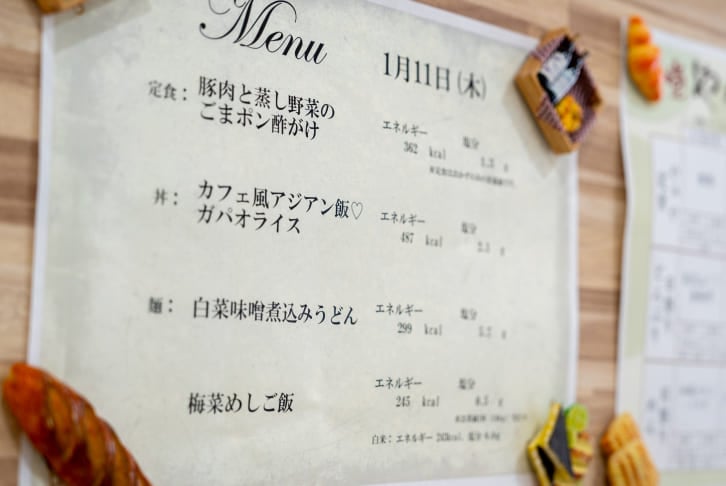 Menu
1月11日(木)
定食： 豚肉と蒸し野菜の
ごまポン酢がけ
エネルギー 塩分
362 kcal g
丼： カフェ風アジアン飯♡
ガパオライス
エネルギー 塩分
487 kcal g
麺： 白菜味噌煮込みうどん
エネルギー 塩分
299 kcal g
梅菜めしご飯
エネルギー 塩分
245 kcal g
白米：エネルギー 塩分